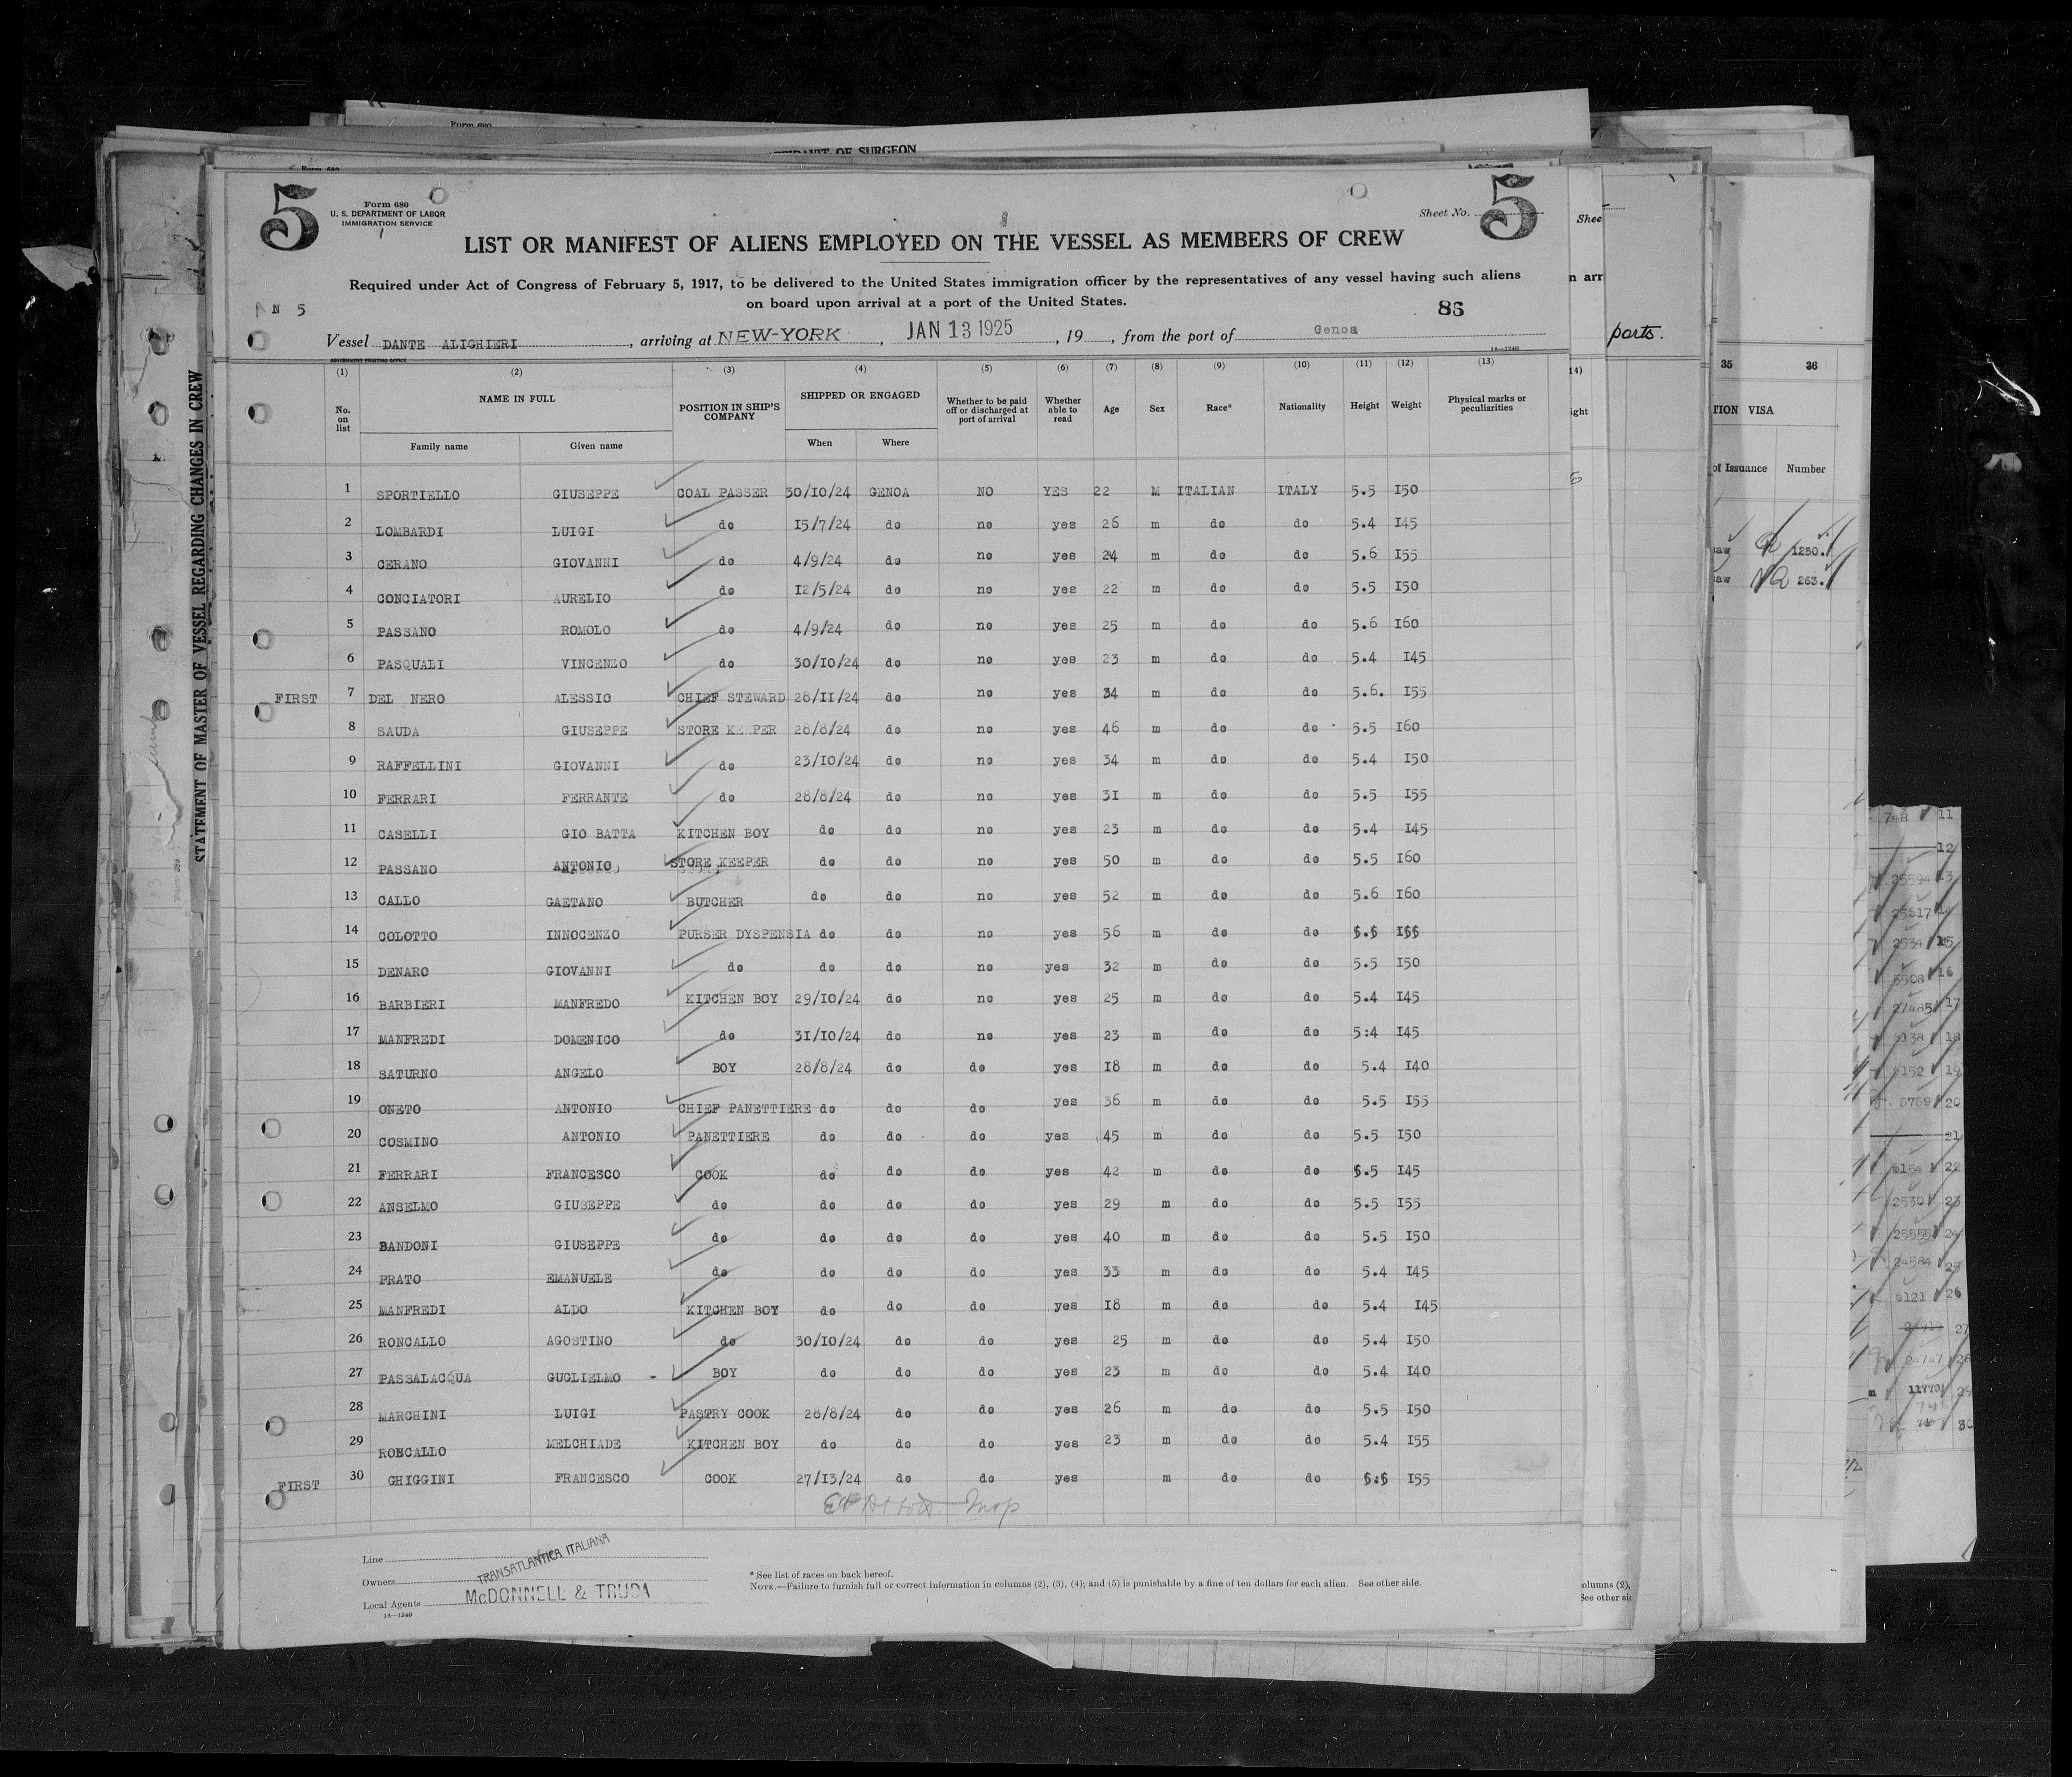 Form 680
AFFIDAVIT OF SURGEON
5
Form 680
U. S. DEPARTMENT OF LABOR
IMMIGRATION SERVICE
Sheet No. 5
LIST OR MANIFEST OF ALIENS EMPLOYED ON THE VESSEL AS MEMBERS OF CREW
Required under Act of Congress of February 5, 1917, to be delivered to the United States immigration officer by the representatives of any vessel having such aliens
on board upon arrival at a port of the United States.
N 5
86
Vessel DANTE ALIGHIERI, arriving at NEW-YORK, JAN 13 1925, 19, from the port of Genoa
GOVERNMENT PRINTING OFFICE 14—1240
(1) (2) (3) (4) (5) (6) (7) (8) (9) (10) (11) (12) (13)
No. on list NAME IN FULL Family name Given name POSITION IN SHIP'S COMPANY SHIPPED OR ENGAGED When Where Whether to be paid off or discharged at port of arrival Whether able to read Age Sex Race* Nationality Height Weight Physical marks or peculiarities
1 SPORTIELLO GIUSEPPE COAL PASSER 30/10/24 GENOA NO YES 22 M ITALIAN ITALY 5.5 150
2 LOMBARDI LUIGI do 15/7/24 do no yes 26 m do do 5.4 145
3 CERANO GIOVANNI do 4/9/24 do no yes 24 m do do 5.6 155
4 CONCIATORI AURELIO do 12/5/24 do no yes 22 m do do 5.5 150
5 PASSANO ROMOLO do 4/9/24 do no yes 25 m do do 5.6 160
6 PASQUALI VINCENZO do 30/10/24 do no yes 23 m do do 5.4 145
FIRST 7 DEL NERO ALESSIO CHIEF STEWARD 28/11/24 do no yes 34 m do do 5.6. 155
8 SAUDA GIUSEPPE STORE KEEPER 28/8/24 do no yes 46 m do do 5.5 160
9 RAFFELLINI GIOVANNI do 23/10/24 do no yes 34 m do do 5.4 150
10 FERRARI FERRANTE do 28/8/24 do no yes 31 m do do 5.5 155
11 CASELLI GIO BATTA KITCHEN BOY do do no yes 23 m do do 5.4 145
12 PASSANO ANTONIO STORE KEEPER do do no yes 50 m do do 5.5 160
13 CALLO GAETANO BUTCHER do do no yes 52 m do do 5.6 160
14 COLOTTO INNOCENZO PURSER DYSPENSIA do do no yes 56 m do do 5.5 155
15 DENARO GIOVANNI do do do no yes 32 m do do 5.5 150
16 BARBIERI MANFREDO KITCHEN BOY 29/10/24 do no yes 25 m do do 5.4 145
17 MANFREDI DOMENICO do 31/10/24 do no yes 23 m do do 5:4 145
18 SATURNO ANGELO BOY 28/8/24 do do yes 18 m do do 5.4 140
19 ONETO ANTONIO CHIEF PANETTIERE do do do yes 36 m do do 5.5 155
20 COSMINO ANTONIO PANETTIERE do do do yes 45 m do do 5.5 150
21 FERRARI FRANCESCO COOK do do do yes 42 m do do 5.5 145
22 ANSELMO GIUSEPPE do do do do yes 29 m do do 5.5 155
23 BANDONI GIUSEPPE do do do do yes 40 m do do 5.5 150
24 PRATO EMANUELE do do do do yes 33 m do do 5.4 145
25 MANFREDI ALDO KITCHEN BOY do do do yes 18 m do do 5.4 145
26 RONCALLO AGOSTINO do 30/10/24 do do yes 25 m do do 5.4 150
27 PASSALACQUA GUGLIELMO - BOY do do do yes 23 m do do 5.4 140
28 MARCHINI LUIGI PASTRY COOK 28/8/24 do do yes 26 m do do 5.5 150
29 RONCALLO MELCHIADE KITCHEN BOY do do do yes 23 m do do 5.4 155
FIRST 30 GHIGGINI FRANCESCO COOK 27/13/24 do do yes m do do 5:5 155
Line
Owners TRANSATLANTICA ITALIANA
Local Agents McDONNELL & TRUDA
14—1240
* See list of races on back hereof.
NOTE.—Failure to furnish full or correct information in columns (2), (3), (4); and (5) is punishable by a fine of ten dollars for each alien. See other side.
STATEMENT OF MASTER OF VESSEL REGARDING CHANGES IN CREW
Shee
n arr
14)
ight
olumns (2),
See other sid
parts.
35 36
TION VISA
of Issuance Number
aw 1250.
aw 263.
748 11
12
25594 13
25617 14
2534 15
5508 16
27485 17
6138 18
6152 19
5759 20
21
6154 22
2530 23
25555 24
24584 25
6121 26
27
24747 28
11770 29
30